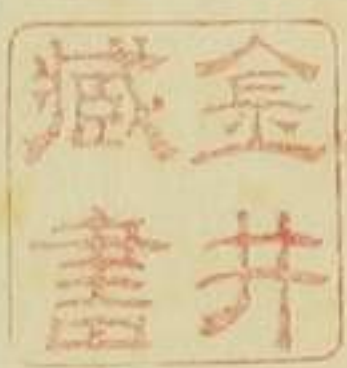 金井
藏書